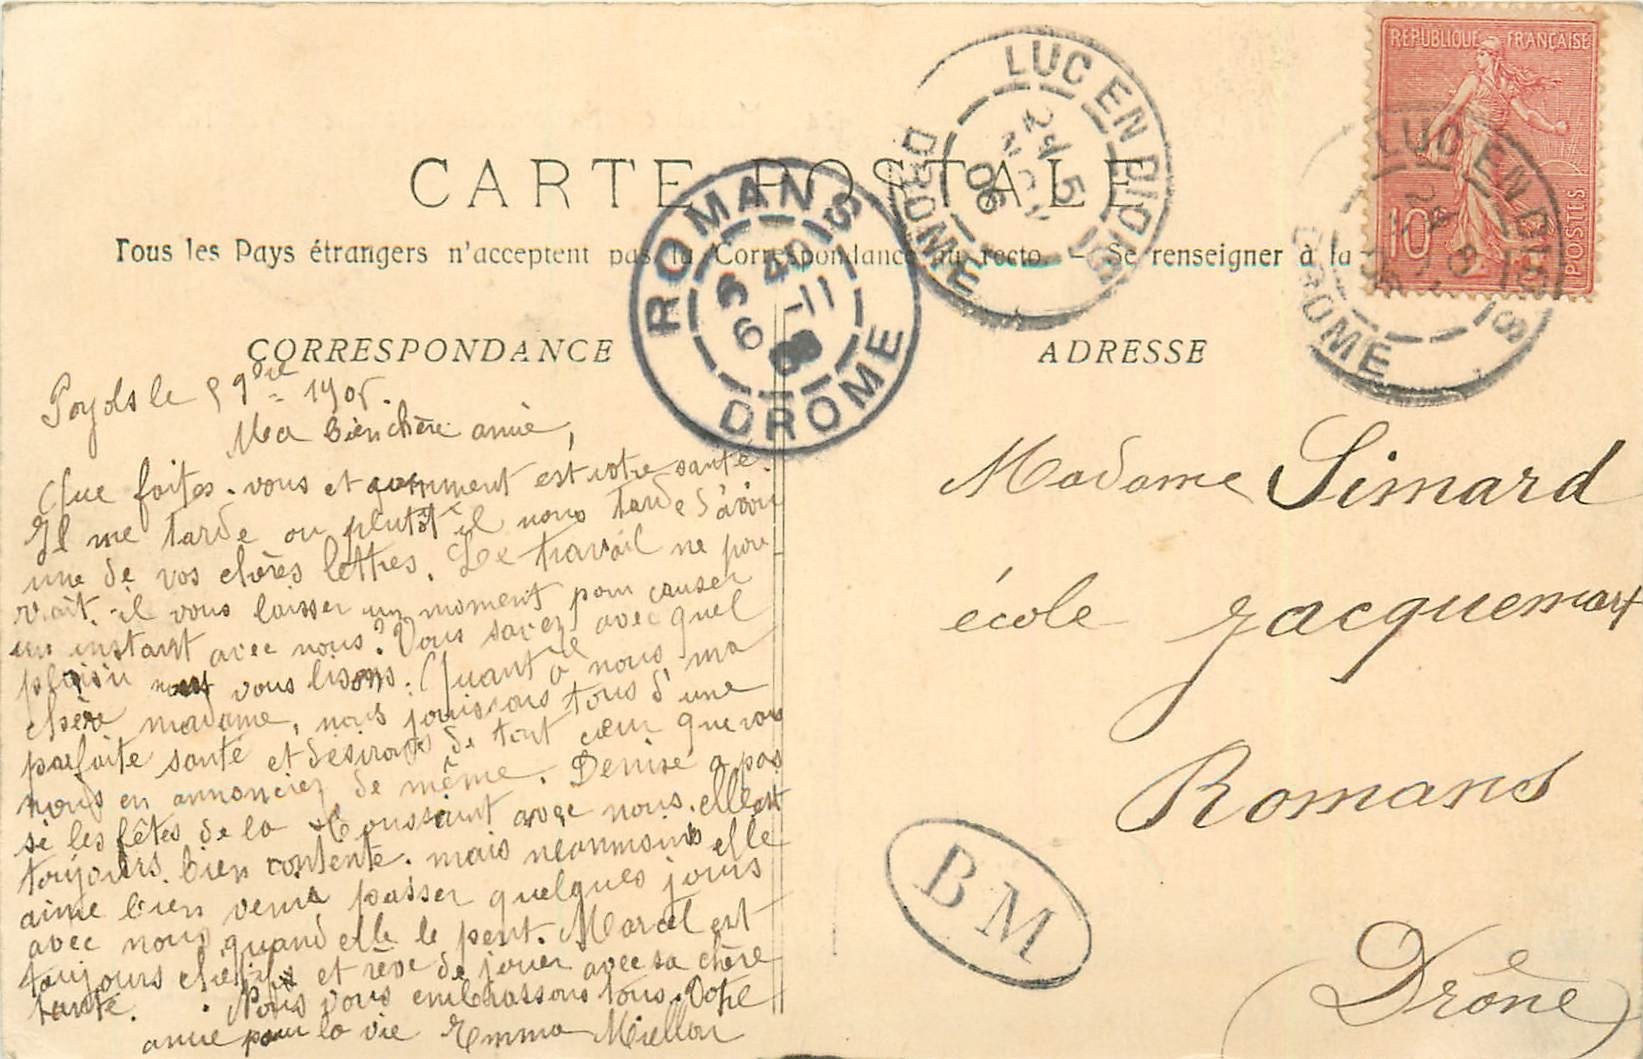 CARTE POSTALE
Tous les Pays étrangers n'acceptent pas la Correspondance au recto. - Se renseigner à la
CORRESPONDANCE
ADRESSE
REPUBLIQUE FRANÇAISE
10
POSTES
LUC EN DIOIS
24 NOV 06
DRÔME
LUC EN DIOIS
24 06
DRÔME
ROMANS
40
6 -11
DROME
Poyols le 1905.
Ma bien chère amie,
Que faites-vous et comment est votre santé.
Il me tarde ou plutôt il nous tarde d'avoir
une de vos chères lettres. Le travail ne pou
rrait-il vous laisser un moment pour causer
un instant avec nous? Vous savez avec quel
plaisir nous vous lisons. Quant à nous ma
chère madame, nous jouissons tous d'une
parfaite santé et désirons de tout cœur que vous
nous en annonciez de même. Denise a pas
sé les fêtes de la Toussaint avec nous. elle est
toujours bien contente. mais néanmoins elle
aime bien venir passer quelques jours
avec nous quand elle le peut. Marcel est
toujours et rêve de jouer avec sa chère
tante. Nous vous embrassons tous. Votre
amie pour la vie Emma Miellou
Madame Simard
école Jacquemart
Romans
Drôme
BM